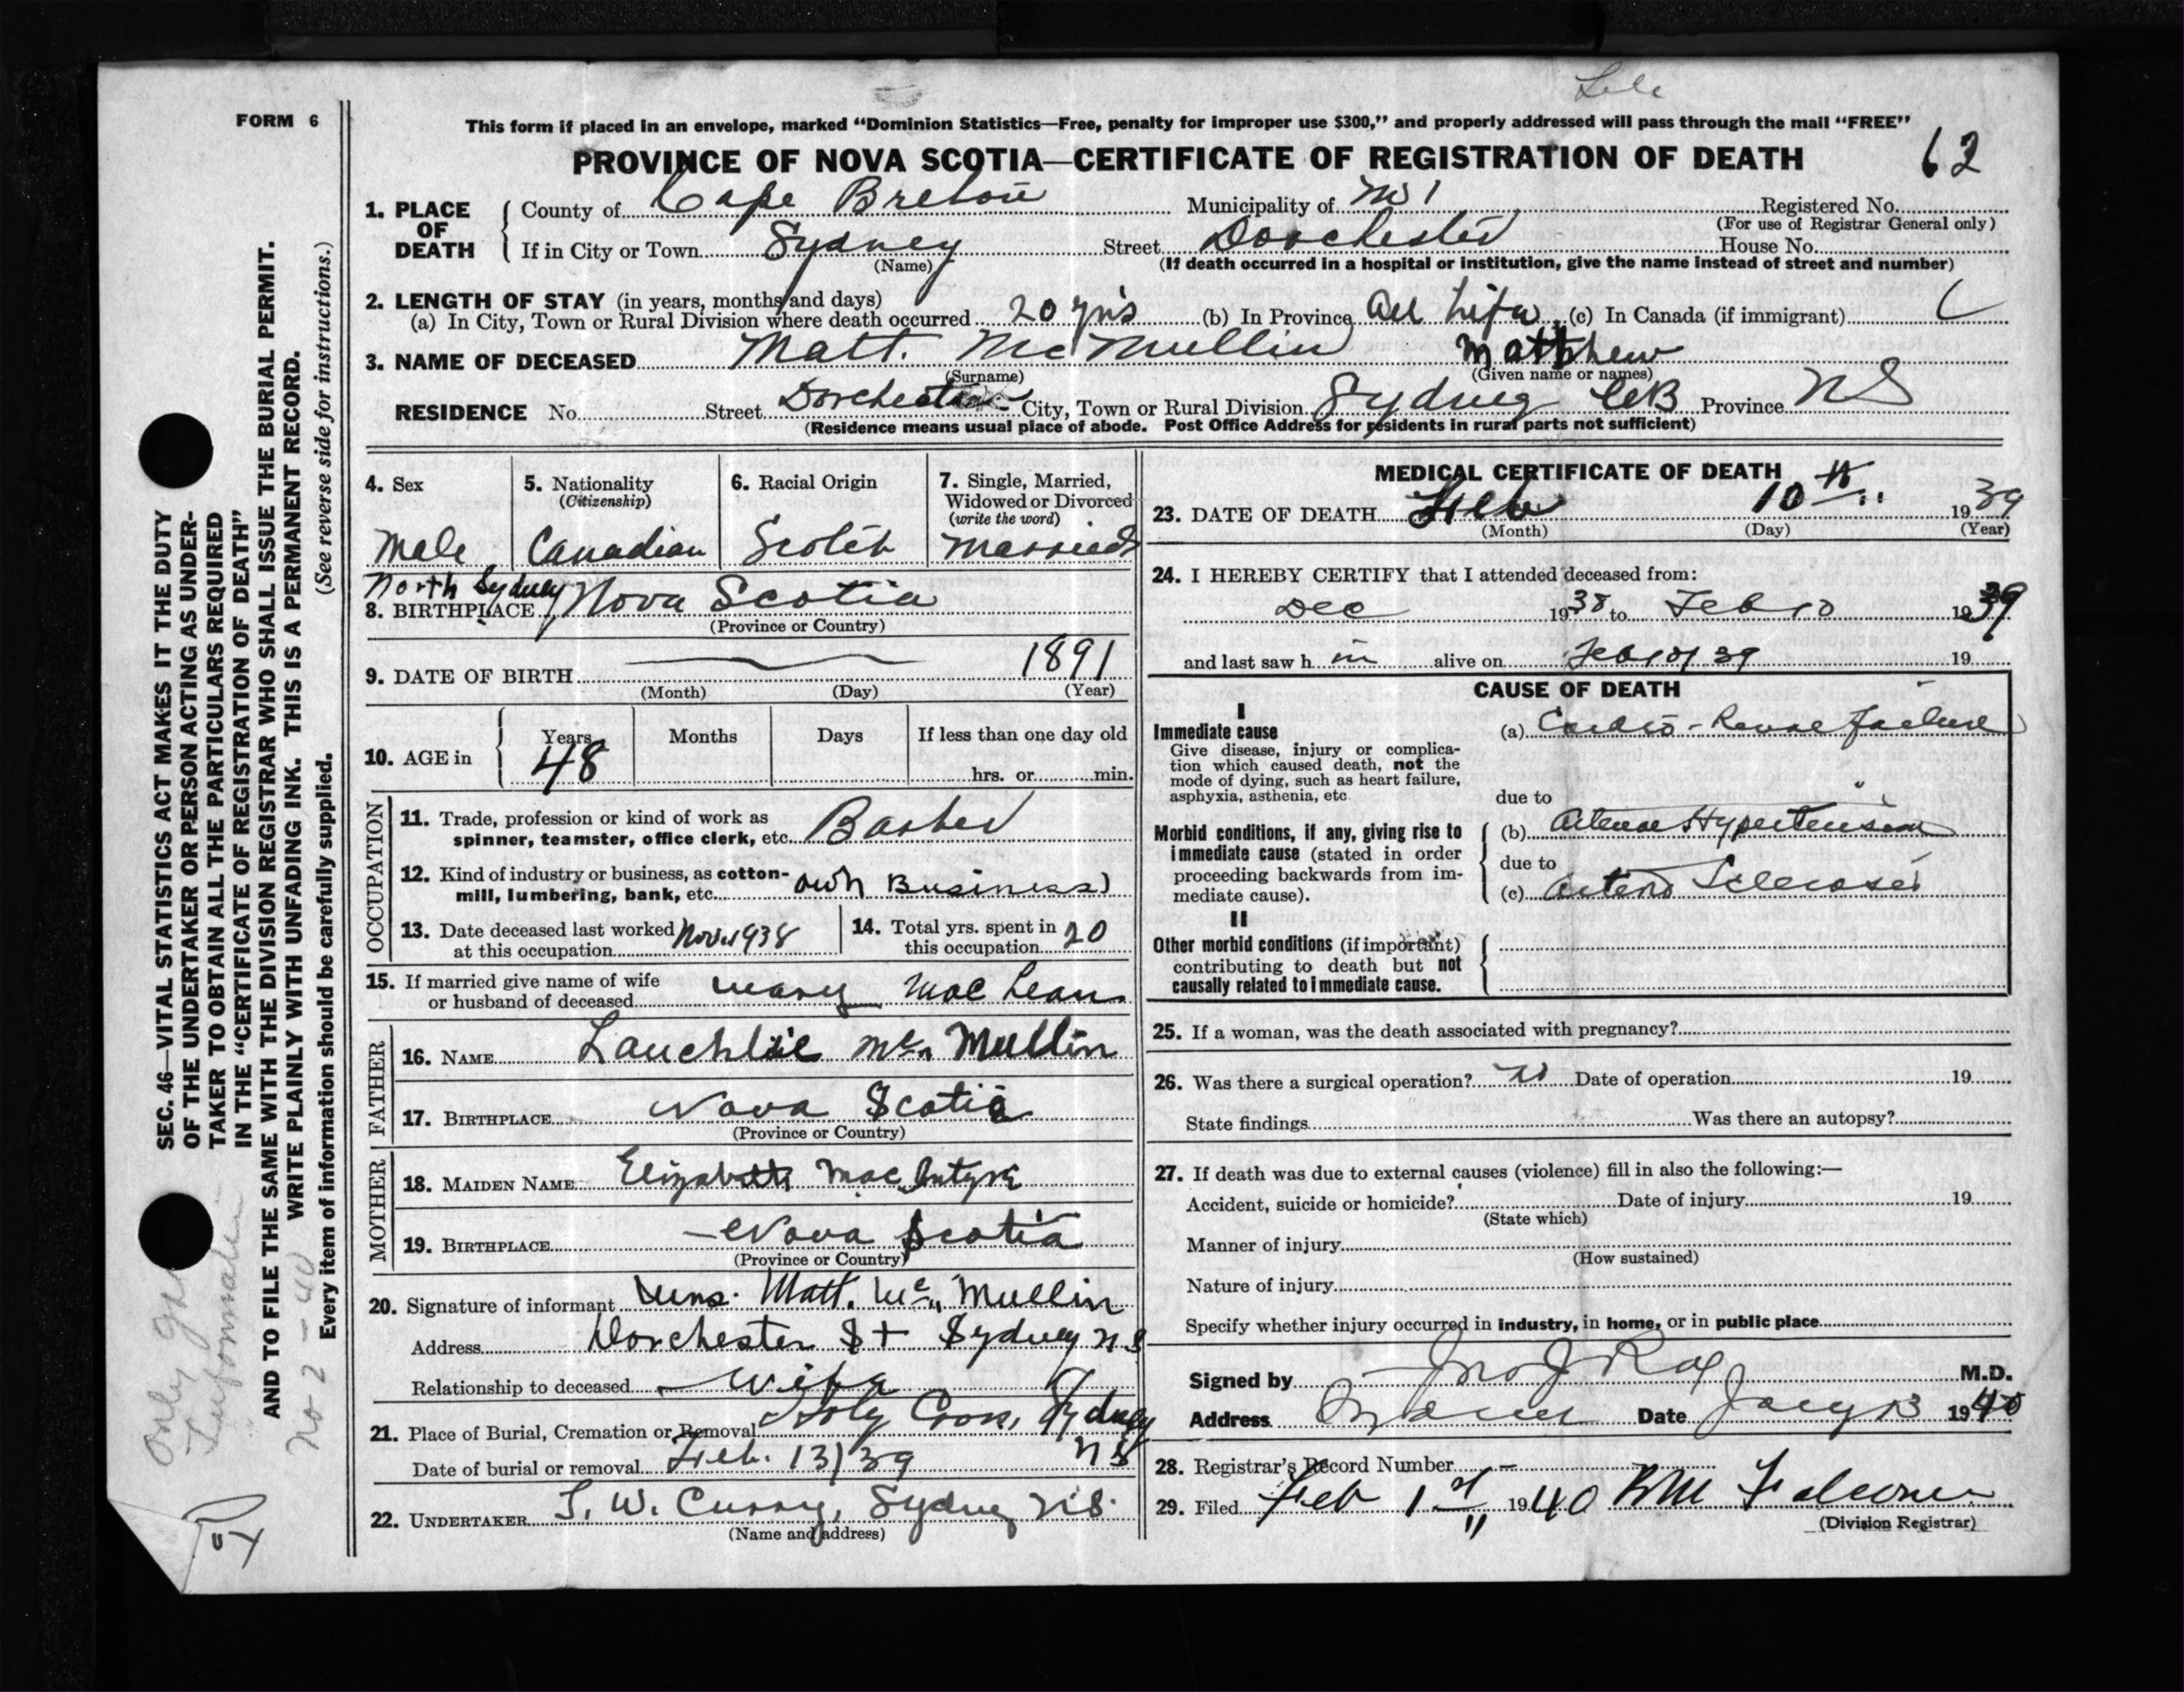 FORM 6
This form if placed in an envelope, marked “Dominion Statistics—Free, penalty for improper use $300,” and properly addressed will pass through the mail “FREE”
PROVINCE OF NOVA SCOTIA—CERTIFICATE OF REGISTRATION OF DEATH 62
1. PLACE OF DEATH
County of Cape Breton Municipality of Registered No.
(For use of Registrar General only)
If in City or Town Sydney Street Dorchester House No.
(Name) (If death occurred in a hospital or institution, give the name instead of street and number)
2. LENGTH OF STAY (in years, months and days)
(a) In City, Town or Rural Division where death occurred 20 yrs (b) In Province All Life (c) In Canada (if immigrant)
3. NAME OF DECEASED Matt. McMullin Matthew
(Surname) (Given name or names)
RESIDENCE No. Street Dorchester City, Town or Rural Division Sydney CB Province NS
(Residence means usual place of abode. Post Office Address for residents in rural parts not sufficient)
4. Sex
Male
5. Nationality
(Citizenship)
Canadian
6. Racial Origin
Scotch
7. Single, Married,
Widowed or Divorced
(write the word)
Married
North Sydney
8. BIRTHPLACE Nova Scotia
(Province or Country)
9. DATE OF BIRTH 1891
(Month) (Day) (Year)
10. AGE in
Years Months Days If less than one day old
48 hrs. or min.
OCCUPATION
11. Trade, profession or kind of work as
spinner, teamster, office clerk, etc. Barber
12. Kind of industry or business, as cotton-
mill, lumbering, bank, etc. own Business
13. Date deceased last worked
at this occupation Nov 1938
14. Total yrs. spent in
this occupation 20
15. If married give name of wife
or husband of deceased Mary MacLean
FATHER
16. NAME Lauchlie Mc Mullin
17. BIRTHPLACE Nova Scotia
(Province or Country)
MOTHER
18. MAIDEN NAME Elizabeth MacIntyre
19. BIRTHPLACE Nova Scotia
(Province or Country)
20. Signature of informant Mrs. Matt. Mc Mullin
Address Dorchester St Sydney N S
Relationship to deceased Wife
21. Place of Burial, Cremation or Removal Holy Cross, Sydney
N S
Date of burial or removal Feb. 13/39
22. UNDERTAKER T. W. Curry, Sydney N.S.
(Name and address)
MEDICAL CERTIFICATE OF DEATH
23. DATE OF DEATH Feb 10th 1939
(Month) (Day) (Year)
24. I HEREBY CERTIFY that I attended deceased from:
Dec 1938 to Feb 10 1939
and last saw h im alive on Feb 10/39 19
CAUSE OF DEATH
I
Immediate cause
Give disease, injury or complica-
tion which caused death, not the
mode of dying, such as heart failure,
asphyxia, asthenia, etc
(a) Cardio-Renal failure
due to
Morbid conditions, if any, giving rise to
immediate cause (stated in order
proceeding backwards from im-
mediate cause).
(b) Hypertension
due to
(c) Arterio Sclerosis
II
Other morbid conditions (if important)
contributing to death but not
causally related to immediate cause.
25. If a woman, was the death associated with pregnancy?
26. Was there a surgical operation? No Date of operation 19
State findings Was there an autopsy?
27. If death was due to external causes (violence) fill in also the following:—
Accident, suicide or homicide? Date of injury 19
(State which)
Manner of injury
(How sustained)
Nature of injury
Specify whether injury occurred in industry, in home, or in public place
Signed by M.D.
Address Date 1940
28. Registrar's Record Number –
29. Filed Feb 1st 1940
(Division Registrar)
SEC. 46—VITAL STATISTICS ACT MAKES IT THE DUTY
OF THE UNDERTAKER OR PERSON ACTING AS UNDER-
TAKER TO OBTAIN ALL THE PARTICULARS REQUIRED
IN THE “CERTIFICATE OF REGISTRATION OF DEATH”
AND TO FILE THE SAME WITH THE DIVISION REGISTRAR WHO SHALL ISSUE THE BURIAL PERMIT.
WRITE PLAINLY WITH UNFADING INK. THIS IS A PERMANENT RECORD.
Every item of information should be carefully supplied. (See reverse side for instructions.)
No 2 – 40